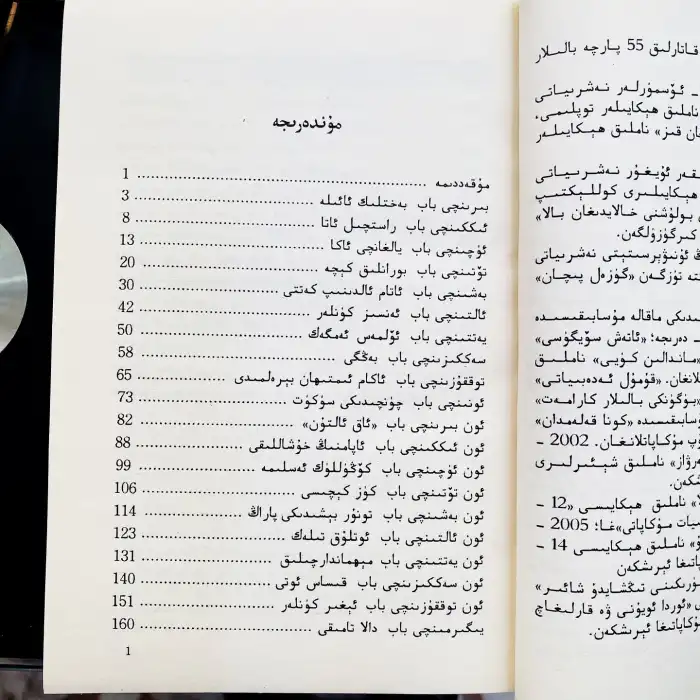 مۇندەرىجە
مۇقەددىمە ........ 1
بىرىنچى باب بەختلىك ئائىلە ........ 3
ئىككىنچى باب راستچىل ئاتا ........ 8
ئۈچىنچى باب يالغانچى ئاكا ........ 13
تۆتىنچى باب بورانلىق كېچە ........ 20
بەشىنچى باب ئاتام ئالدىنىپ كەتتى ........ 30
ئالتىنچى باب ئەنسىز كۈنلەر ........ 42
يەتتىنچى باب ئۆلمەس ئەمگەك ........ 50
سەككىزىنچى باب بەڭگى ........ 58
توققۇزىنچى باب ئاكام ئىمتىھان بېرەلمىدى ........ 65
ئونىنچى باب چۈنچىدىكى سۈكۈت ........ 73
ئون بىرىنچى باب «ئاق ئالتۇن» ........ 82
ئون ئىككىنچى باب ئاپامنىڭ خۇشاللىقى ........ 88
ئون ئۈچىنچى باب كۆڭۈللۈك ئەسلىمە ........ 99
ئون تۆتىنچى باب كۈز كېچىسى ........ 106
ئون بەشىنچى باب تونۇر بېشىدىكى پاراڭ ........ 114
ئون ئالتىنچى باب ئوتلۇق تىلەك ........ 123
ئون يەتتىنچى باب مېھماندارچىلىق ........ 131
ئون سەككىزىنچى باب قىساس ئوتى ........ 140
ئون توققۇزىنچى باب ئېغىر كۈنلەر ........ 151
يىگىرمىنچى باب دالا تامىقى ........ 160
1
قاتارلىق 55 پارچە بالىلار
ـ ئۆسمۈرلەر نەشرىياتى
ناملىق ھېكايىلەر توپلىمى،
قىز» ناملىق ھېكايىلەر
ئۇيغۇر نەشرىياتى
ھېكايىلىرى كوللېكتىپ
بولۇشنى خالايدىغان بالا»
كىرگۈزۈلگەن.
ئۇنىۋېرسىتېتى نەشرىياتى
تۈزگەن «گۈزەل پىچان»
ماقالە مۇسابىقىسىدە
ـ دەرىجە؛ «ئاتەش سۆيگۈسى»
«ماندالىن كۈيى» ناملىق
«قۇمۇل ئەدەبىياتى»
«بۈگۈنكى بالىلار كارامەت»
«كونا قەلەمدان»
مۇكاپاتلانغان. 2002 ـ
ناملىق شېئىرلىرى
ناملىق ھېكايىسى «12 ـ
مۇكاپاتى»غا؛ 2005 ـ
ناملىق ھېكايىسى 14 ـ
ئېرىشكەن
تىڭشايدۇ شائىر»
«ئوردا ئويۇنى ۋە قارلىغاچ
ئېرىشكەن.